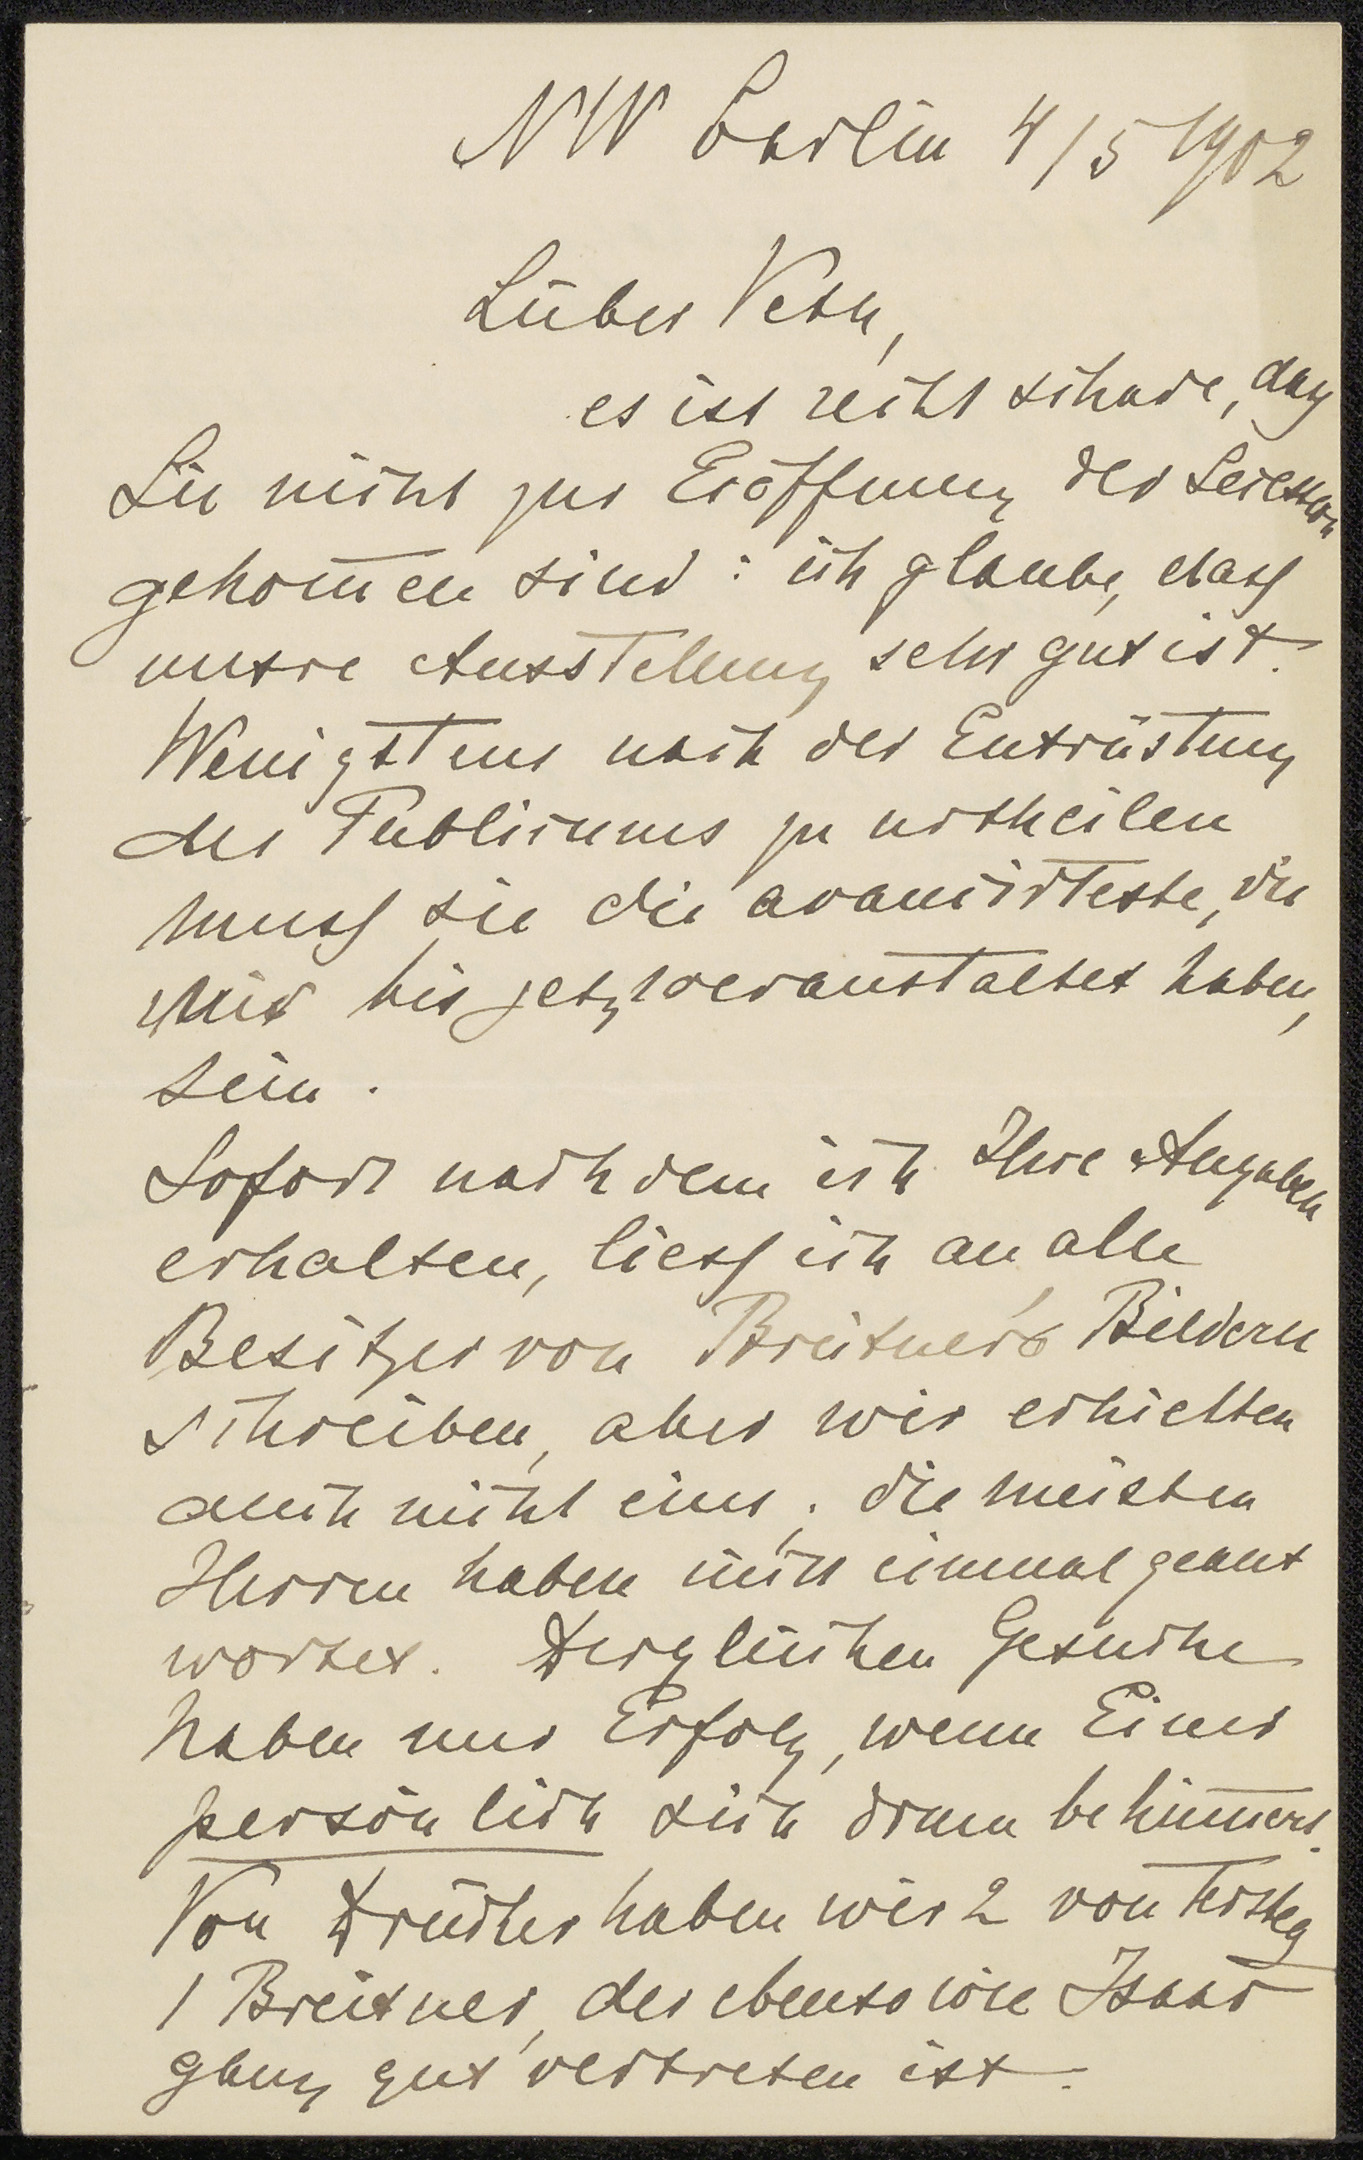 NW Berlin 4/5 1902
Lieber Veth,
es ist recht schade, dass
Sie nicht zur Eröffnung der Secession
gekommen sind: ich glaube, dass
unsre Ausstellung sehr gut ist.
Wenigstens nach der Entrüstung
des Publicums zu urtheilen
muss sie die avancirteste, die
wir bis jetzt veranstaltet haben,
sein.
Sofort nachdem ich Ihre Angaben
erhalten, liess ich an alle
Besitzer von Breitner's Bildern
schreiben, aber wir erhielten
auch nicht eins. die meisten
Herren haben nicht einmal geant
wortet. Dergleichen Gesuche
haben nur Erfolg, wenn Einer
persönlich sich drum bekümmert.
Von Drücker haben wir 2 von Tersteg
1 Breitner, der ebenso wie Isaac
ganz gut vertreten ist.